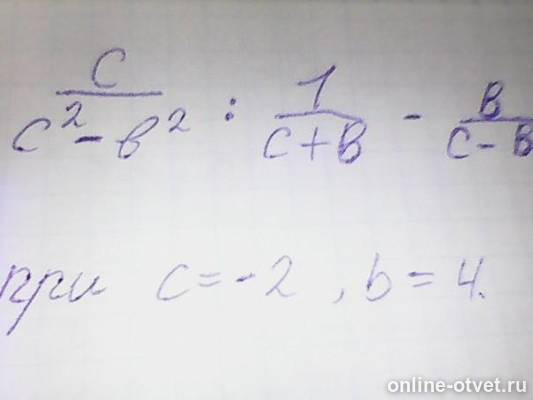 c/(c²-в²) : 1/(c+в) - в/(c-в
при c=-2, b=4.
online-otvet.ru